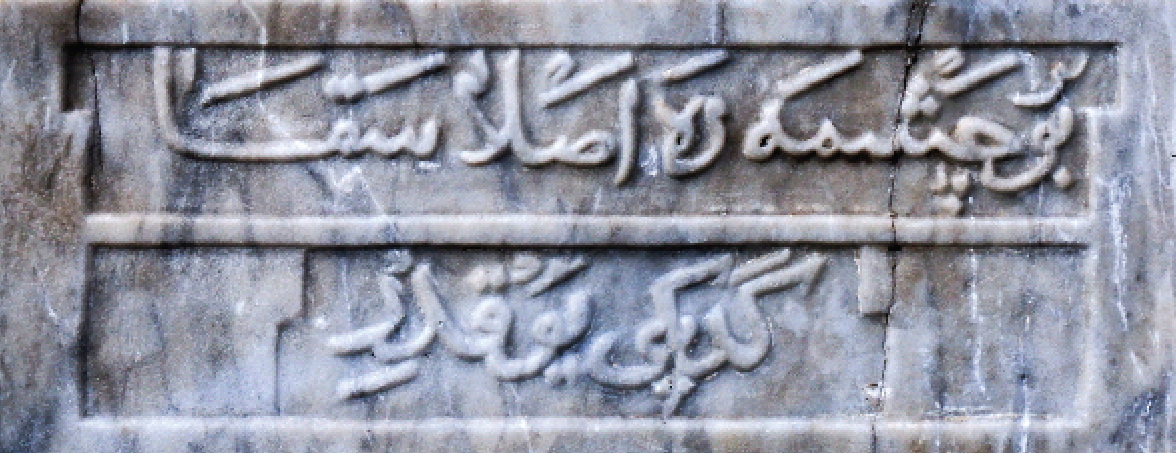 بو چشمه ده اصلا سقا
گدیكی یوقدر